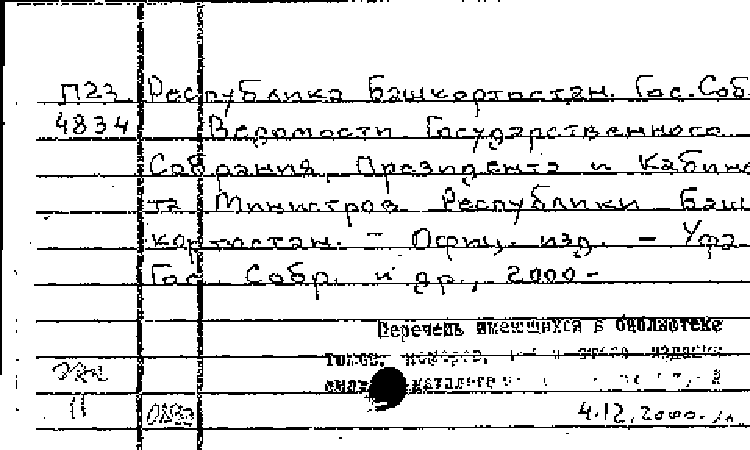 П23 Республика Башкортостан. Гос. Соб
4834 Ведомости Государственного
Собрания, Президента и Кабине
та Министров Республики Баш
кортостан. - Офиц. изд. - Уфа
Гос. Собр. и др., 2000-
Перечень имеющихся в библиотеке
томов, номеров, этого издания
каталоге
4.12.2000.